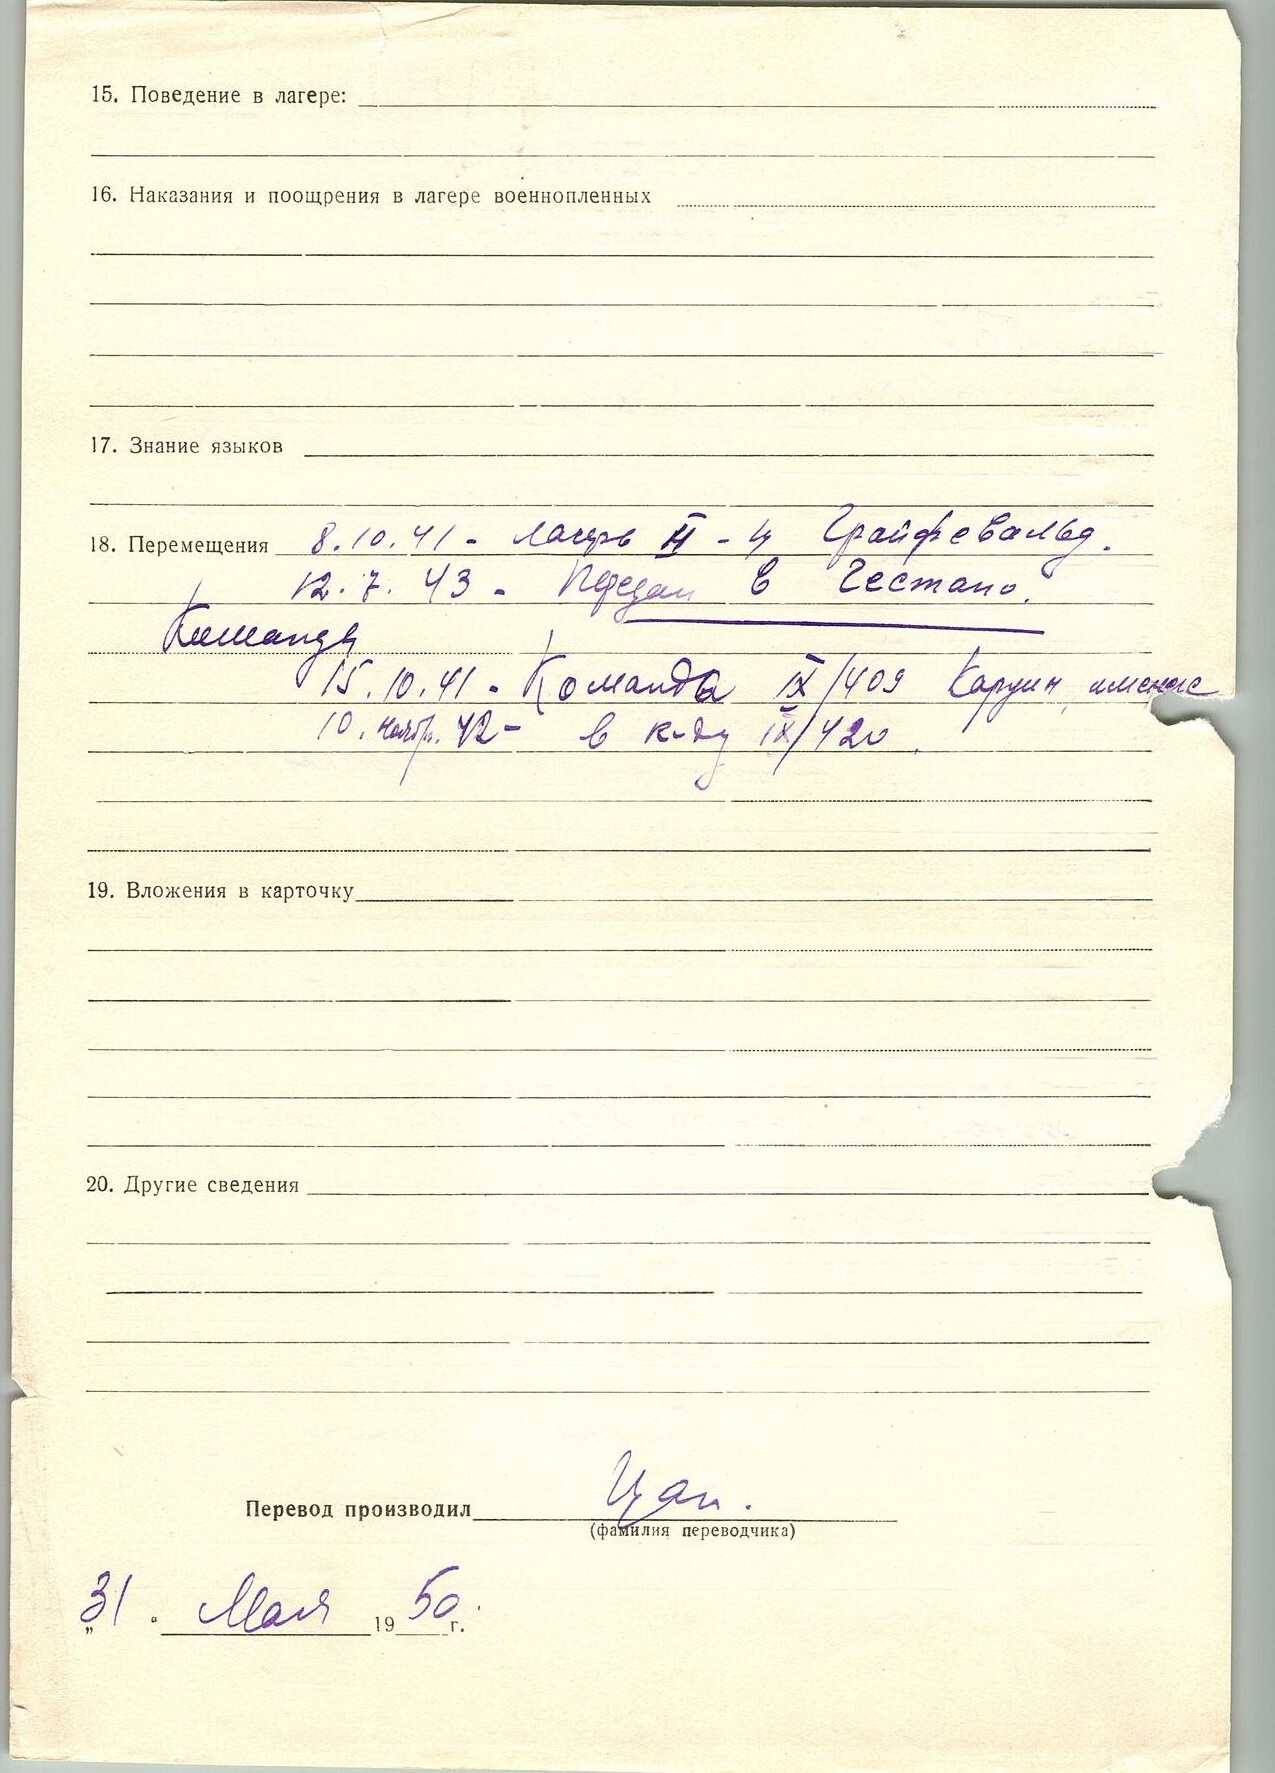 15. Поведение в лагере:
16. Наказания и поощрения в лагере военнопленных
17. Знание языков
18. Перемещения 8.10.41 - лагерь II - ц Грайфсвальд.
12.7.43 - Передан в Гестапо.
Команды
15.10.41 - Команда IX/409 Карзин, имение
10. ноябр. 42 - в к-ду IX/420.
19. Вложения в карточку
20. Другие сведения
Перевод производил
(фамилия переводчика)
„31“ Мая 1950 г.